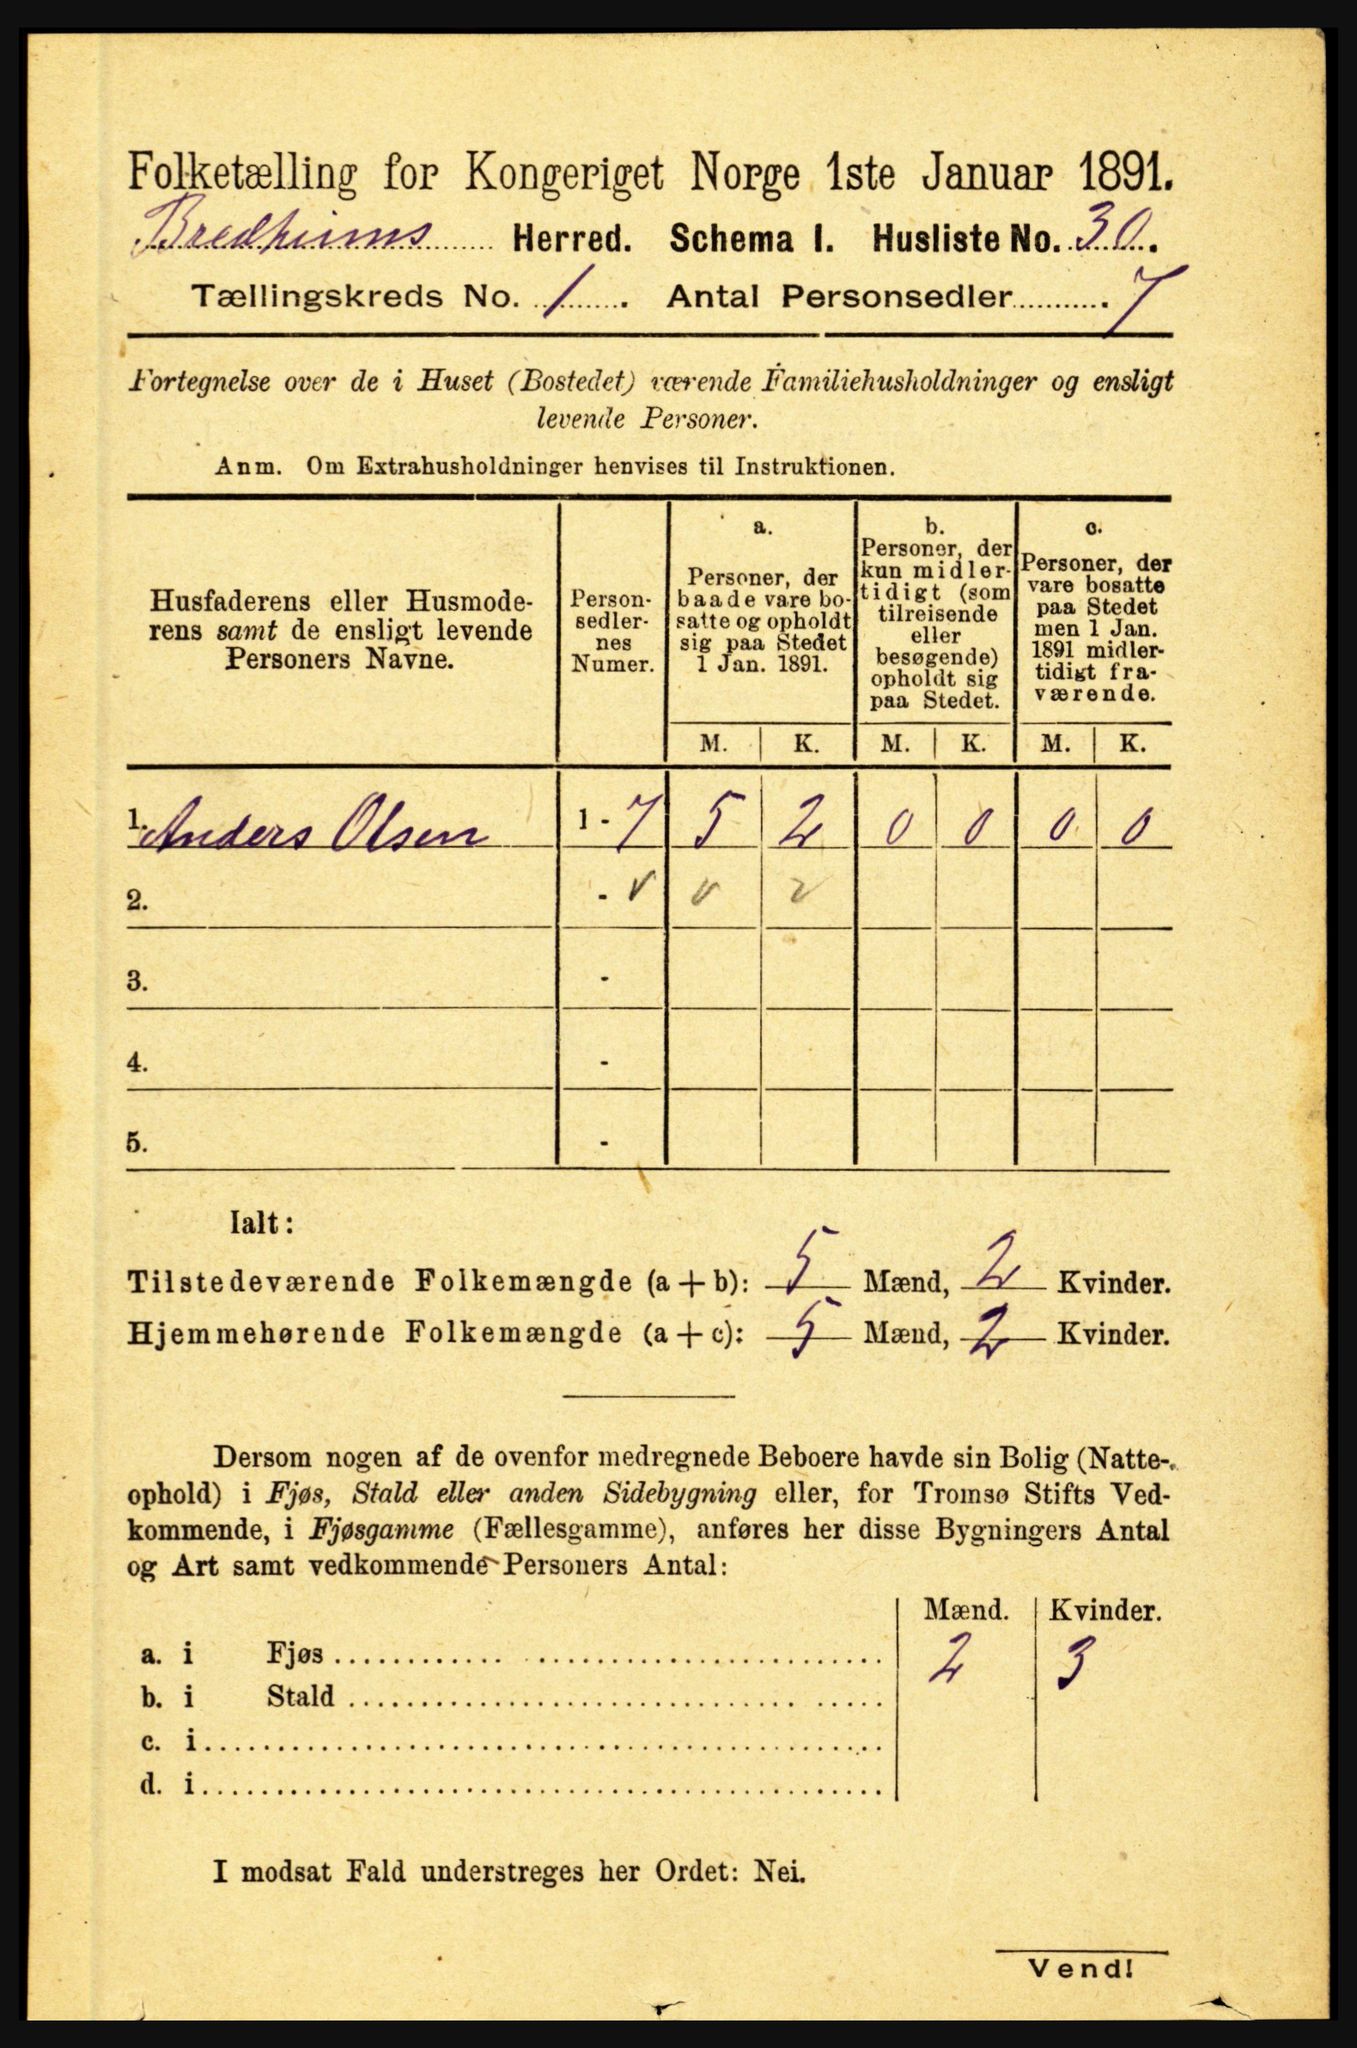 Folketælling for Kongeriget Norge 1ste Januar 1891.
Bredheims Herred. Schema I. Husliste No. 30.
Tællingskreds No. 1. Antal Personsedler 7
Fortegnelse over de i Huset (Bostedet) værende Familiehusholdninger og ensligt
levende Personer.
Anm. Om Extrahusholdninger henvises til Instruktionen.
Husfaderens eller Husmode-
rens samt de ensligt levende
Personers Navne.
Person-
sedler-
nes
Numer.
a.
Personer, der
baade vare bo-
satte og opholdt
sig paa Stedet
1 Jan. 1891.
b.
Personer, der
kun midler-
tidigt (som
tilreisende
eller
besøgende)
opholdt sig
paa Stedet.
c.
Personer, der
vare bosatte
paa Stedet
men 1 Jan.
1891 midler-
tidigt fra-
værende.
M. K. M. K. M. K.
1. Anders Olsen 1 - 7 5 2 0 0 0 0
2. -
3. -
4. -
5. -
Ialt:
Tilstedeværende Folkemængde (a + b): 5 Mænd, 2 Kvinder.
Hjemmehørende Folkemængde (a + c): 5 Mænd, 2 Kvinder.
Dersom nogen af de ovenfor medregnede Beboere havde sin Bolig (Natte-
ophold) i Fjøs, Stald eller anden Sidebygning eller, for Tromsø Stifts Ved-
kommende, i Fjøsgamme (Fællesgamme), anføres her disse Bygningers Antal
og Art samt vedkommende Personers Antal:
Mænd. Kvinder.
a. i Fjøs 2 3
b. i Stald
c. i
d. i
I modsat Fald understreges her Ordet: Nei.
Vend!